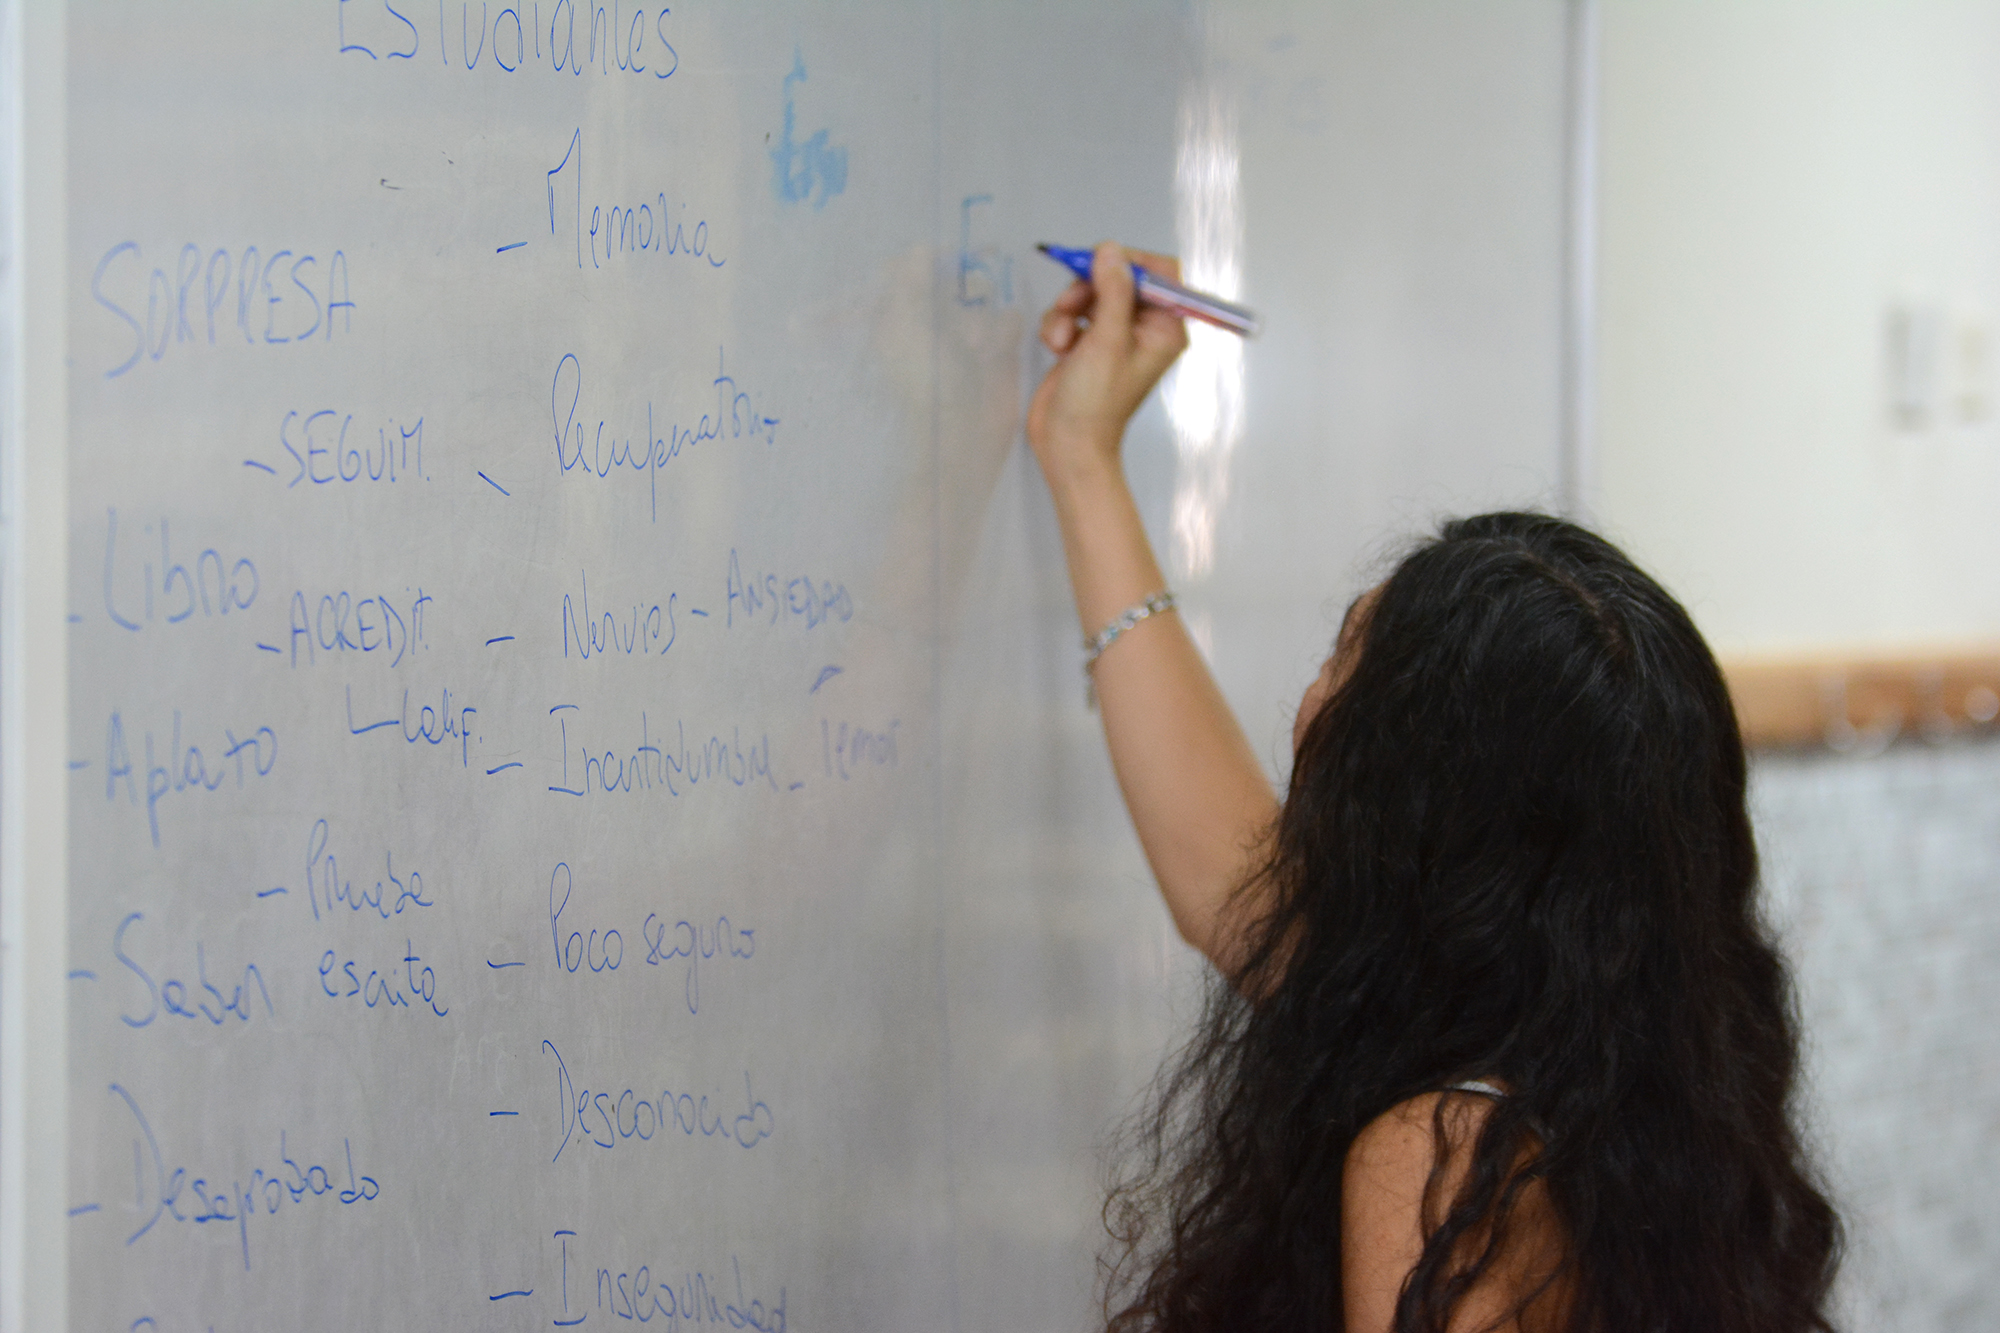 Estudiantes
SORPRESA
- Memoria
- SEGUIM.
- Recuperatorio
- Libro
- ACREDIT.
- Nervios - ANSIEDAD
- Aplazo
Calif.
- Incertidumbre - Temor
- Prueba
escrita
- Saber
- Poco seguro
- Desconocido
- Desaprobado
- Inseguridad